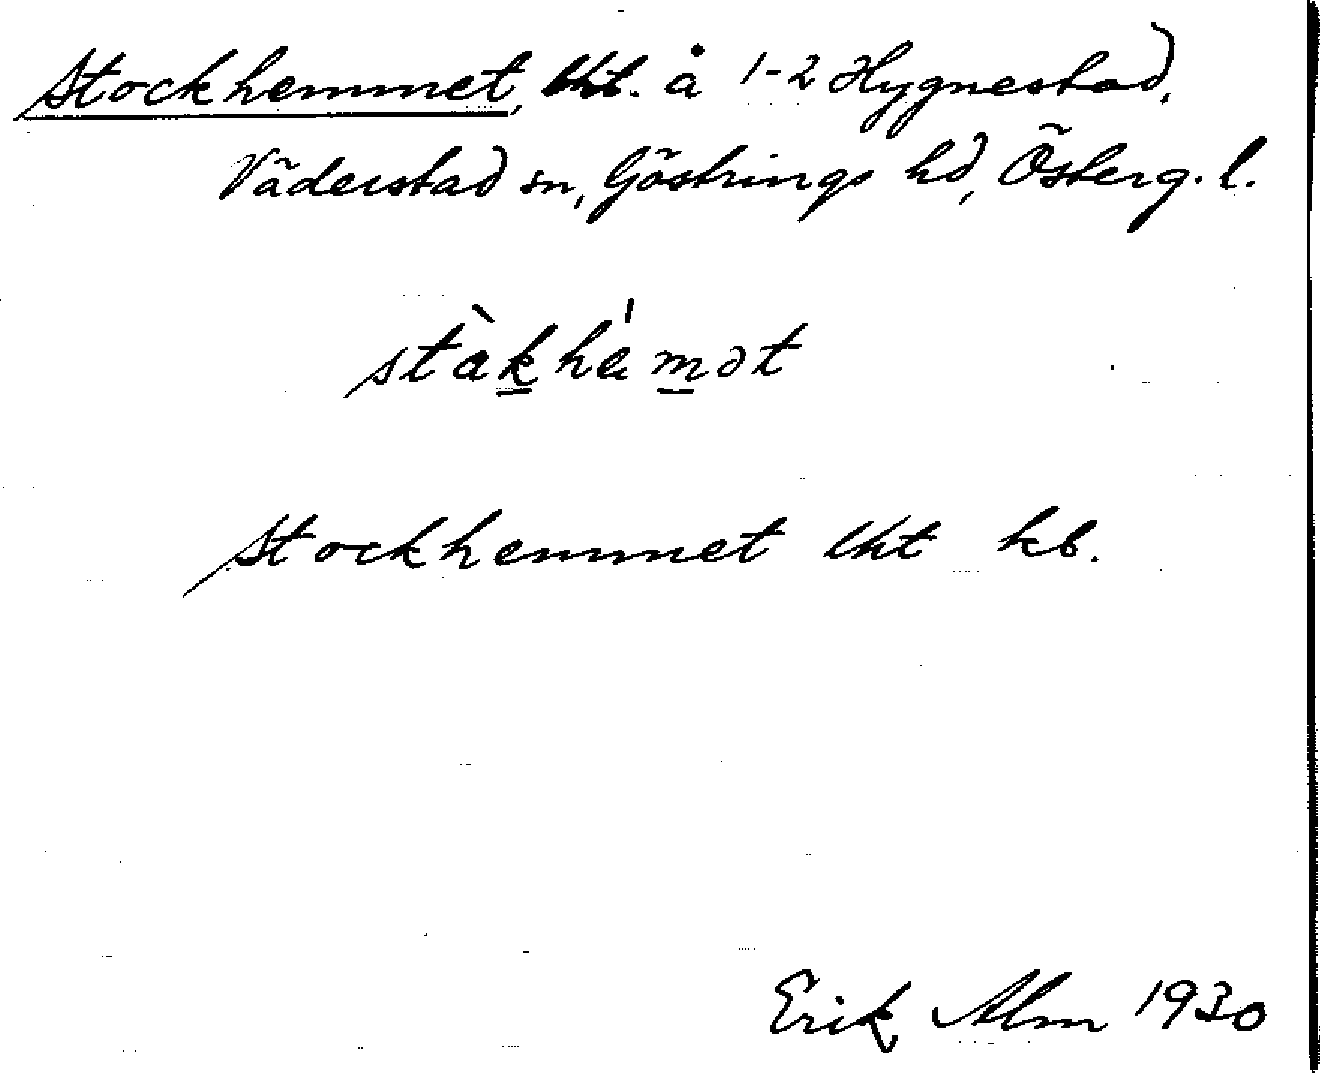 Stockhemmet, lht. å 1-2 Hygnestad,
Väderstad sn, Göstrings hd, Österg. l.
stàkhá̍mət
Stockhemmet lht kb.
Erik Alm 1930